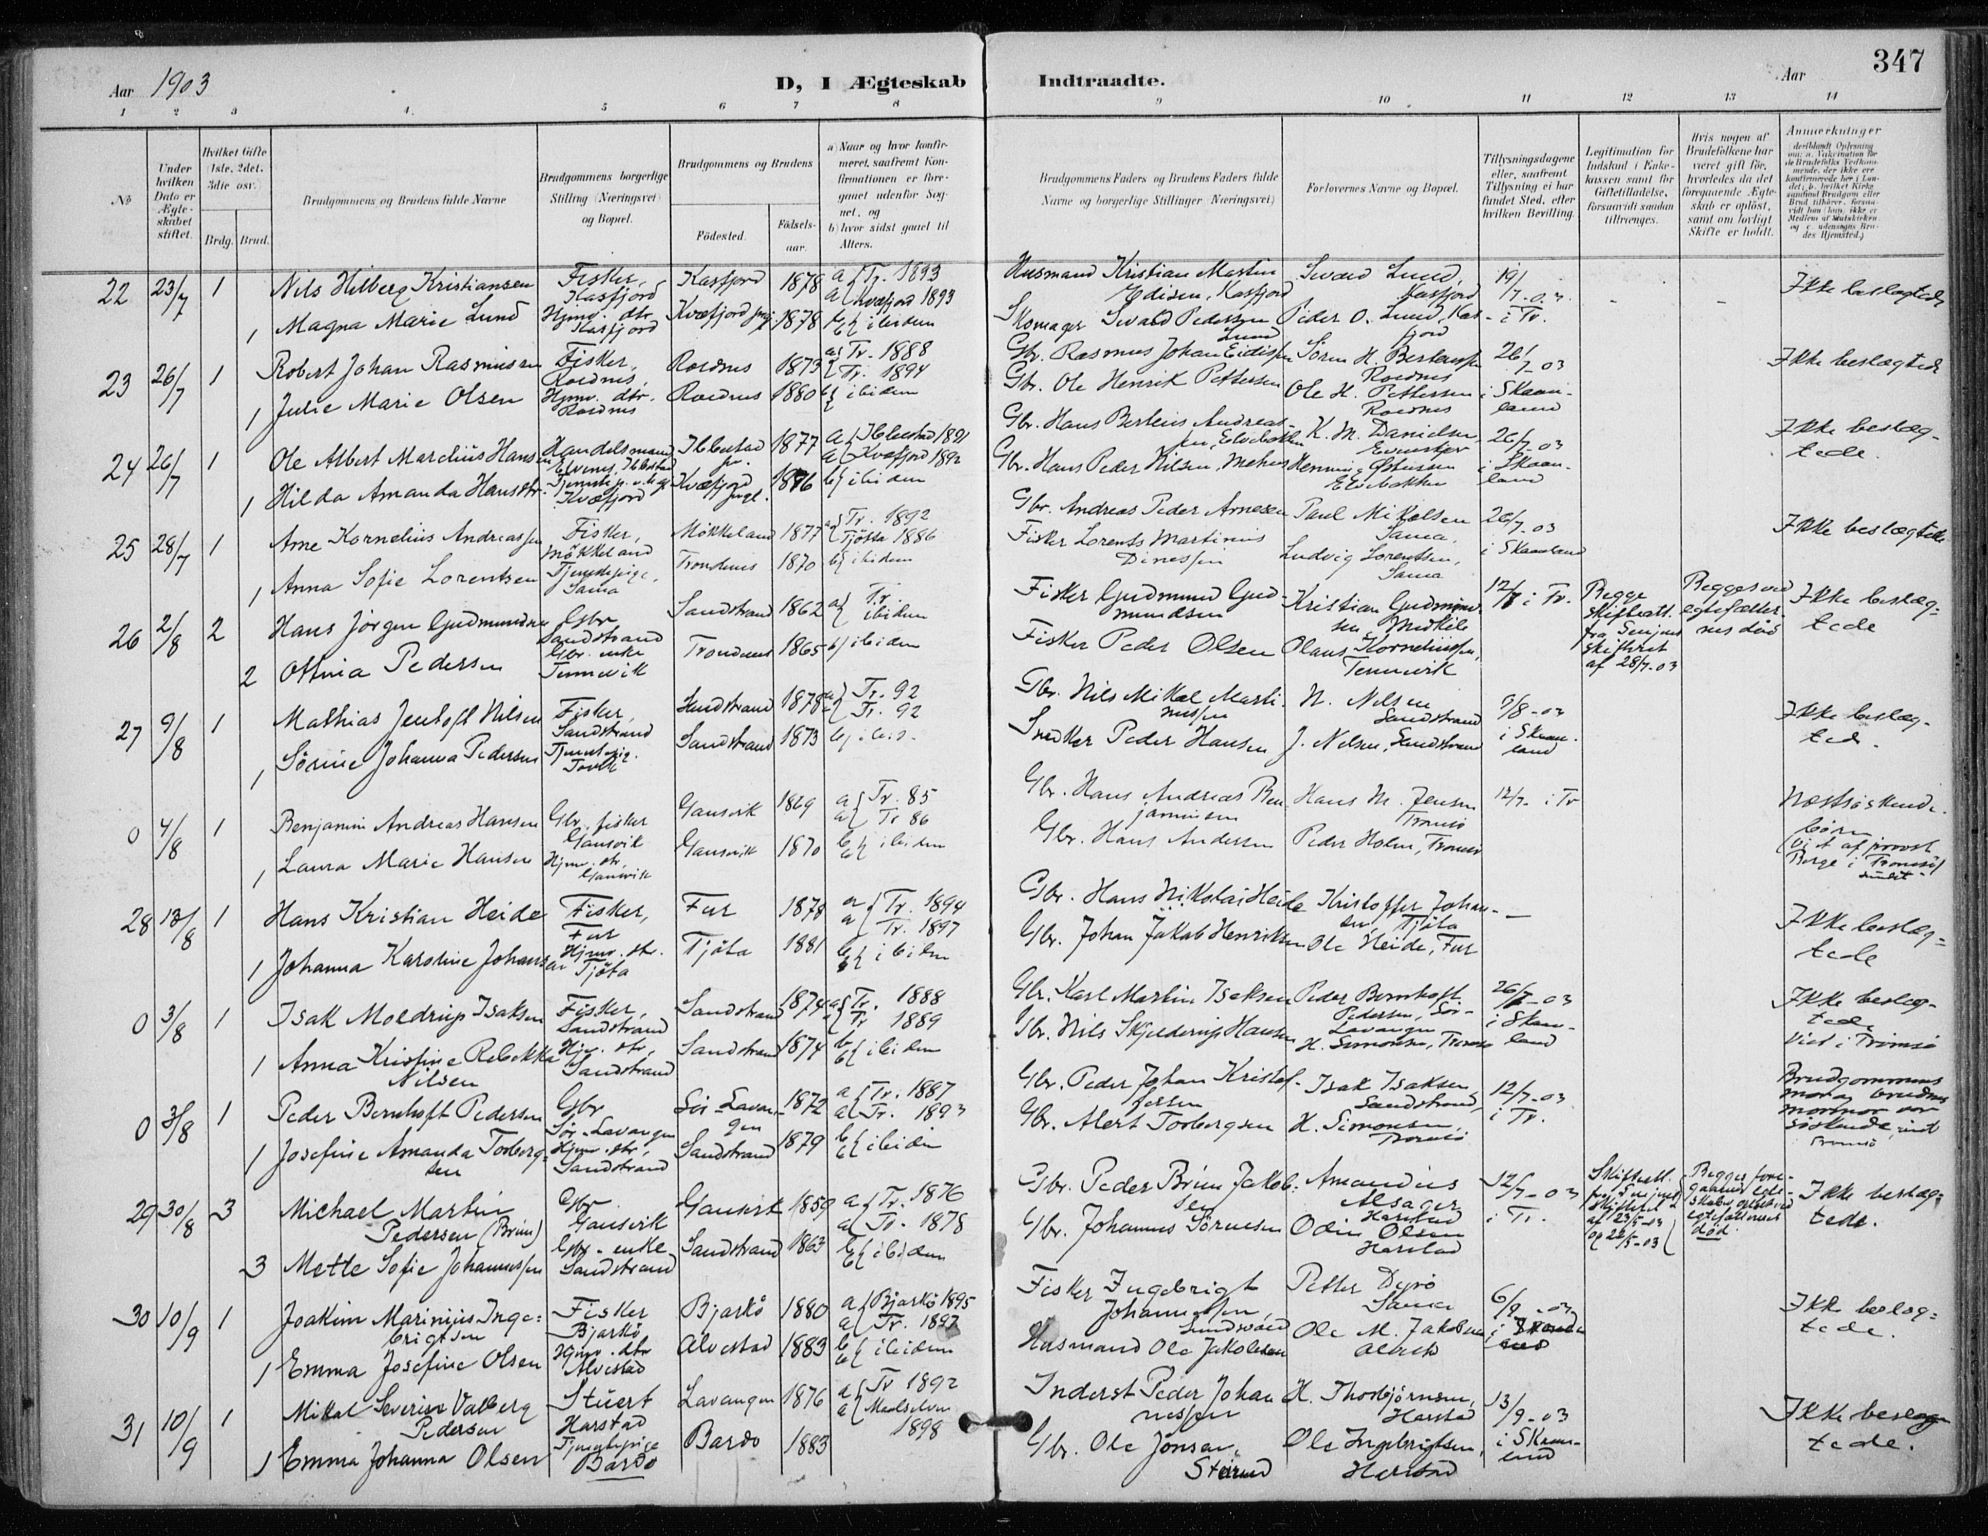 347
Aar 1903
D, I Ægteskab Indtraadte. Aar
1 2 3 4 5 6 7 8 9 10 11 12 13 14
No
Under hvilken Dato er Ægteskabet stiftet.
Hvilket Gifte (1ste, 2det, 3die osv.)
Brdg. Brud.
Brudgommens og Brudens fulde Navne
Brudgommens borgerlige Stilling (Næringsvei) og Bopæl.
Brudgommens og Brudens
Födested. Födselsaar.
a) Naar og hvor konfirmeret, saafremt Konfirmationen er foregaaet udenfor Sognet, og
b) hvor sidst gaaet til Alters.
Brudgommens Faders og Brudens Faders fulde Navne og borgerlige Stillinger (Næringsvei)
Forlovernes Navne og Bopæl.
Tillysningsdagene eller, saafremt Tillysning ei har fundet Sted, efter hvilken Bevilling.
Legitimation for Indskud i Enkekassen samt for Giftetilladelse, forsaavidt saadan tiltrænges.
Hvis nogen af Brudefolkene har været gift før, hvorledes da det foregaaende Ægteskab er opløst, samt om lovligt Skifte er holdt.
Anmærkninger
22 23/7 1 Nils Hilberg Kristiansen Fisker, Kasfjord Kasfjord 1878 a{Tr. 1893 Husmand Kristian Martin Edisen, Kasfjord Sivard Lund, Kasfjord 19/7-03 - - Ikke beslægtede
1 Magna Marie Lund Hjmv. dtr Kasfjord Kvæfjord 1878 a{Kvæfjord 1893 b{ibidem Skomager Sivard Pedersen Lund Peder O. Lund, Kasfjord i Tr.
23 26/7 1 Robert Johan Rasmussen Fisker, Roednes, Roednes 1873 a{Tr. 1888 Gbr. Rasmus Johan Eidissen Søren H. Bertensen Roednes 26/7-03 Ikke beslægtede
1 Julie Marie Olsen Hjmv. dtr. Roednes Roednes 1880 Tr. 1894 b{ibidem Gbr. Ole Henrik Pettersen Ole H. Pettersen Roednes i Skaanland
24 26/7 1 Ole Albert Marelius Hansen Handelsmand Elvenes, Ibbestad Ibbestad 1877 a{Ibbestad 1891 Gbr. Hans Berteus Andreassen, Elvebakken K. M. Danielsen, Evenskjer 26/7-03 Ikke beslægtede.
1 Hilda Amanda Hansdtr. Kvæfjord Kvæfjord 1876 a{Kvæfjord 1892 b{ibidem Gbr. Hans Peder Nilsen, Mehus Henning Østensen Elvebakken i Skaanland
25 28/7 1 Arne Kornelius Andreassen Fisker, Møkkeland Møkkeland 1877 a{Tr. 1892 Gbr. Andreas Peder Arnesen Paul Mikalsen Sama, 26/7-03 Ikke beslægtede
1 Anna Sofie Lorentsen Tjenestepige, Sama Trondenes 1870 Tjøtta 1886 b{ibidem Fisker Lorents Martinius Dinessen Ludvig Lorentsen, Sama i Skaanland
26 2/8 2 Hans Jørgen Gudmundsen Gbr Sandstrand Sandstrand 1862 a{Tr. ibidem Fisker Gudmund Gudmundsen Kristian Gudmundsen Medkile 12/7 i Tr. Begge skifteatt. fra Senjens skifteret af 28/7-03 Begges ved egtefællernes død Ikke beslægtede
2 Ottina Pedersen Gbr. enke Tennevik Trondenes 1865 b{ibidem Fisker Peder Olsen Olaus Korneliussen, Tennevik
27 9/8 1 Mathias Jentoft Nilsen Fisker, Sandstrand Sandstrand 1878 a{Tr. 92 Gbr. Nils Mikal Martinussen N. Nilsen Sandstrand 9/8-03 Ikke beslægted.
1 Sørine Johanna Pedersen Tjenestepig. Sandstrand 1873 a{Tr. 92 b{ibid. Snedker Peder Hansen J. Nilsen, Sandstrand i Skaanland
0 4/8 1 Benjamin Andreas Hansen Gbr. fisker Gausvik Gausvik 1869 a{Tr. 85 Gbr. Hans Andreas Benjaminsen Hans M. Jensen Tromsø 12/7- i Tr Næstsøskendebørn (viet af provst Berge i Tromsøsundet
1 Laura Marie Hansen Hjmv. dtr, Gausvik Gausvik 1870 a{Tr 86 b{ibidem Gbr. Hans Andersen Peder Holm, Tromsø
28 13/8 1 Hans Kristian Heide Fisker, Fur Fur 1878 a{Tr. 1894 Gbr. Hans Nikolai Heide Kristoffer Johansen, Tjøta — Ikke beslægtede
1 Johanna Karoline Johansen Hjmv. dtr. Tjøta Tjøta 1881 a{Tr. 1897 b{ibidem Gbr. Johan Jakob Henriksen Ole Heide, Fur
0 3/8 1 Isak Moldrup Isaksen Fisker, Sandstrand Sandstrand 1874 a{Tr. 1888 Gbr. Karl Martin Isaksen Peder Bernhoft Pedersen, Sør-Lavangen 26/7-03 Ikke beslægtede Viet i Tromsø
1 Anna Kristine Rebekka Nilsen Hjmv. dtr, Sandstrand Sandstrand 1874 Tr 1889 b{ibidem Gbr. Nils Skjelderup Hansen H. Simonsen, Tromsø i Skaanland
0 3/8 1 Peder Bernhoft Pedersen Gbr Sør-Lavangen Sør-Lavangen 1872 a{Tr. 1887 Gbr. Peder Johan Kristoffersen Isak Isaksen, Sandstrand, 12/7-03 Brudgommens mor og brudens mormor var søskende, viet Tromsø
1 Josefine Amanda Torbergsen Hjmv. dtr, Sandstrand Sandstrand 1879 a{Tr. 1893 b{ibidem Gbr. Albert Torbergsen H. Simonsen, Tromsø i Tr.
29 30/8 3 Michael Martin Pedersen (Brun) Gbr Gausvik Gausvik 1859 a{Tr. 1876 Gbr. Peder Brun Jakobsen Amandus Alsager Harstad 12/7-03 Skifteatt. fra Senjens skifteret af 23/5-03 og 22/5-03 Ikke beslægtede.
3 Mette Sofie Johannessen Gbr-enke Sandstrand Sandstrand 1863 a{Tr. 1878 b{ibidem Gbr. Johannes Sørensen Odin Olsen Harstad i Tr.
30 10/9 1 Joakim Marinius Ingebrigtsen Fisker Bjarkö Bjarkö 1880 a{Bjarkö 1895 Fisker Ingebrigt Johannessen, Sundsvold Petter Dyrø Sama 6/9-03 Ikke beslægtede.
1 Emma Josefine Olsen Hjmv. dtr Alvestad Alvestad 1883 a{Tr. 1897 b{ibidem Husmand Ole Jakobsen Ole M. Jakobsen
31 10/9 1 Mikal Severin Valberg Pedersen Stuert Harstad Lavangen 1876 a{Tr 1892 Inderst Peder Johannessen H. Thorbjørnsen, Harstad 13/9-03 Ikke beslægtede.
1 Emma Johanna Olsen Tjenestepige Bardo Bardo 1883 a{Maalselven 1898 Gbr. Ole Jonsen, Ole Ingebrigtsen, Harstad i Skaanland